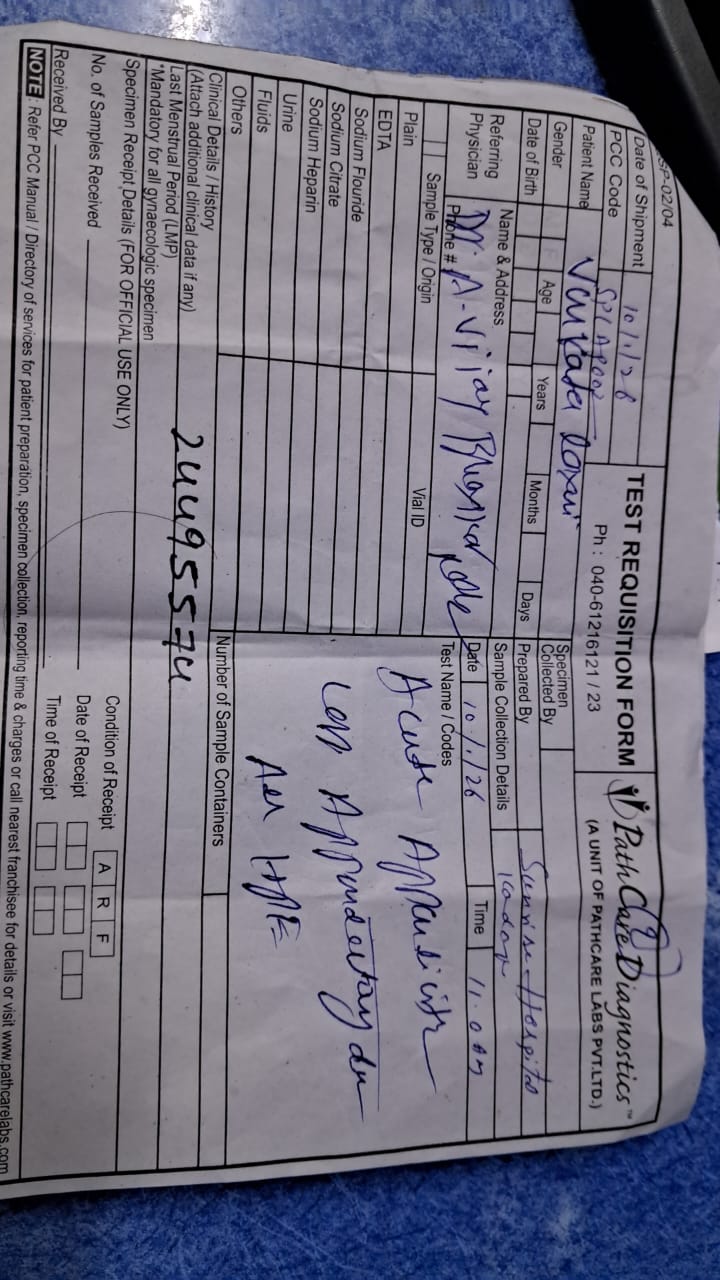 SP-02/04
Date of Shipment 10/1/26
TEST REQUISITION FORM
PathCare Diagnostics™
PCC Code
Ph : 040-61216121 / 23
(A UNIT OF PATHCARE LABS PVT.LTD.)
Patient Name Venkata
Gender Age Years Months Days
Date of Birth
Specimen Collected By
Prepared By Sunrise Hospital
Referring Physician
Name & Address Dr. A. Vijay
Phone #
Sample Collection Details
Date 10/1/26 Time 11.00 Am
Sample Type / Origin Vial ID
Test Name / Codes
Plain
EDTA
Sodium Flouride
Sodium Citrate
Sodium Heparin
Urine
Fluids
Others
Acute Appendicitis
Lap Appendectomy
HPE
Number of Sample Containers
Clinical Details / History
(Attach additional clinical data if any)
Last Menstrual Period (LMP)
*Mandatory for all gynaecologic specimen
24495574
Specimen Receipt Details (FOR OFFICIAL USE ONLY)
No. of Samples Received
Condition of Receipt A R F
Date of Receipt
Received By
Time of Receipt
NOTE : Refer PCC Manual / Directory of services for patient preparation, specimen collection, reporting time & charges or call nearest franchisee for details or visit www.pathcarelabs.com